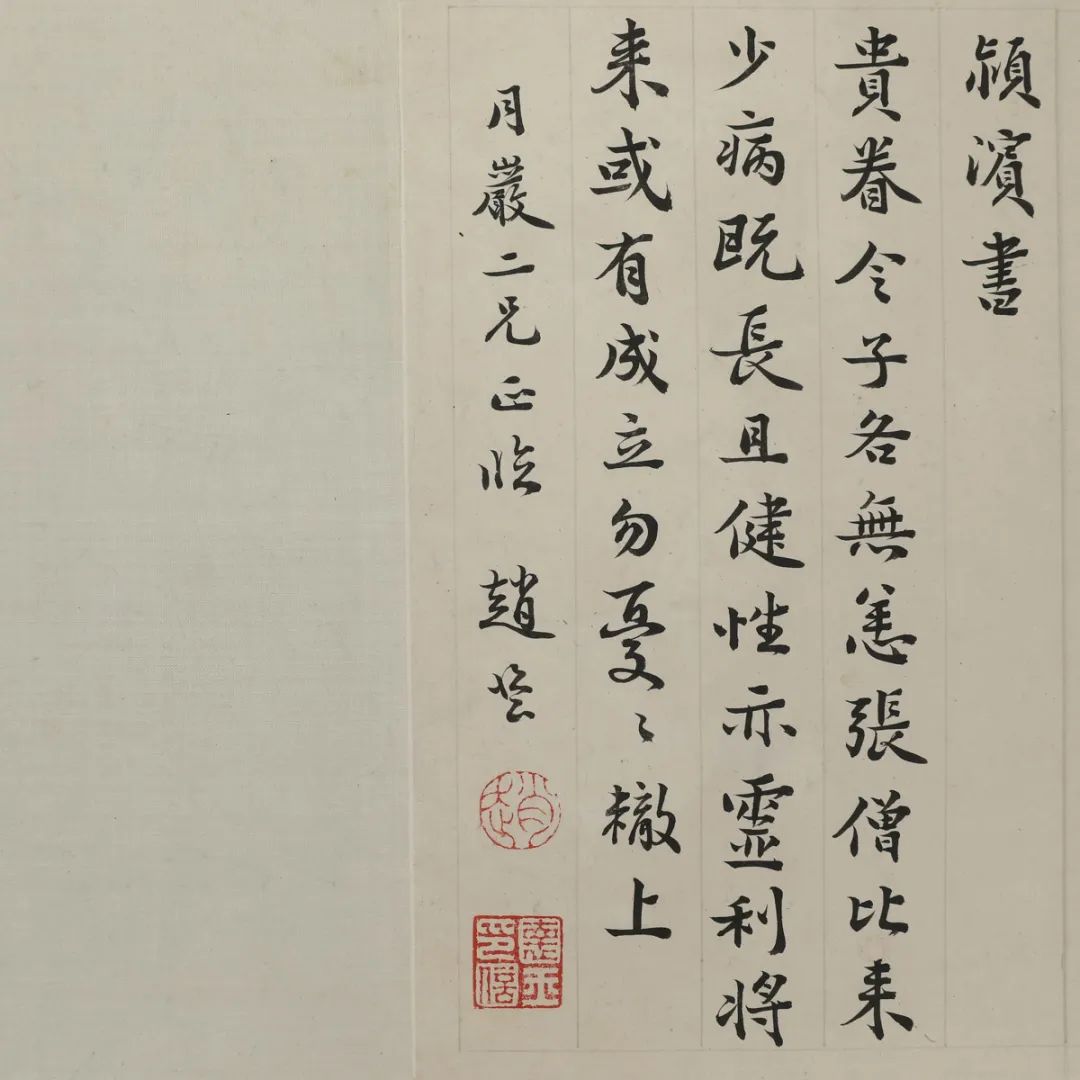 潁濱書
貴眷令子各無恙張僧比来
少病既長且健性亦靈利将
来或有成立勿憂〻轍上
月巖二兄正臨 趙
趙
印信